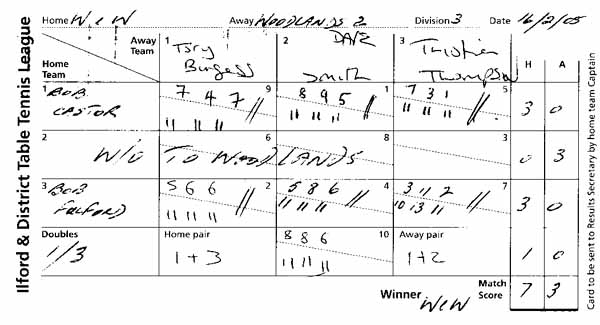 Ilford & District Table Tennis League
Home W e W Away WOODLANDS 2 Division 3 Date 16/2/05
Away Team 1 Tony Burgess 2 DAVE Smith 3 Thompson H A
Home Team
1 BOB CASTOR 7 4 7 9 8 9 5 1 7 3 1 5 3 0
11 11 11 11 11 11 11 11 11
2 W/O TO WOODLANDS 6 8 3 0 3
3 BOB FULFORD 5 6 6 2 5 8 6 4 3 11 2 7 3 0
11 11 11 11 11 11 10 13 11
Doubles Home pair 8 8 6 10 Away pair
1/3 1+3 11 11 11 1+2 1 0
Winner WeW Match Score 7 3
Card to be sent to Results Secretary by home team Captain